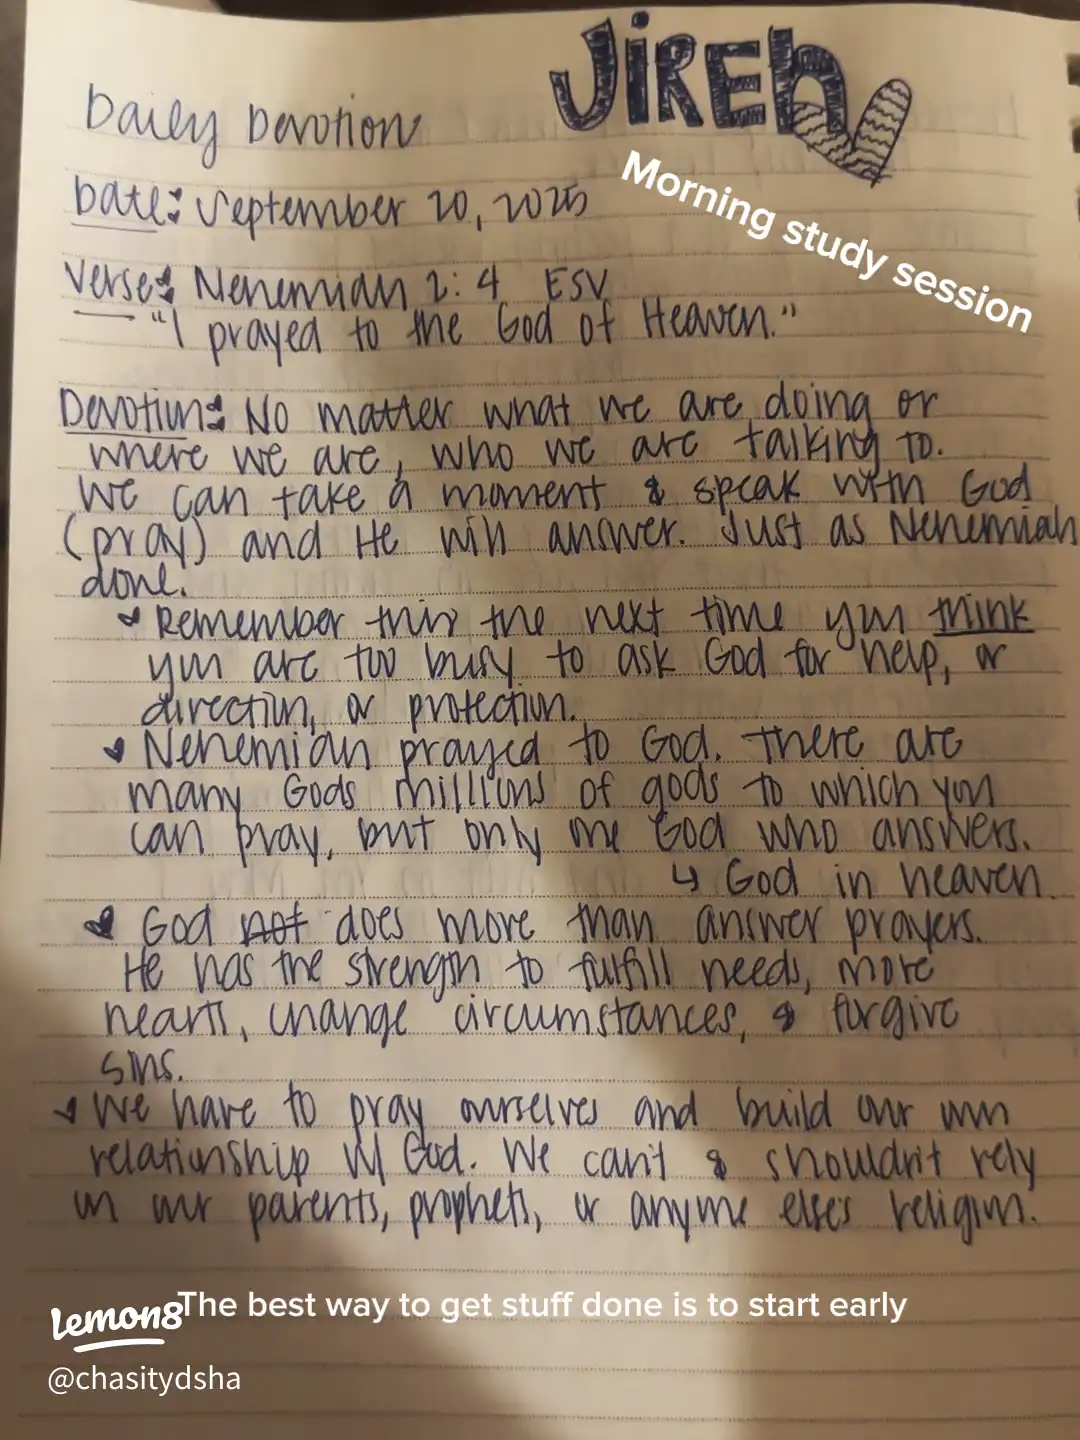 JIREh
Daily Devotion
Morning study session
Date: September 20, 2025
Verse: Nehemiah 2:4 ESV
"I prayed to the God of Heaven."
Devotion: No matter what we are doing or
where we are, who we are talking to.
We can take a moment & speak with God
(pray) and He will answer. Just as Nehemiah
done.
Remember this the next time you think
you are too busy to ask God for help, or
direction, or protection.
Nehemiah prayed to God. There are
many Gods millions of gods to which you
can pray, but only one God who answers.
↳ God in heaven
God not does more than answer prayers.
He has the strength to fulfill needs, more
hearts, change circumstances, & forgive
sins.
We have to pray ourselves and build our own
relationship w/ God. We can't & shouldn't rely
on our parents, prophets, or anyone else's religion.
The best way to get stuff done is to start early
Lemon8
@chasitydsha